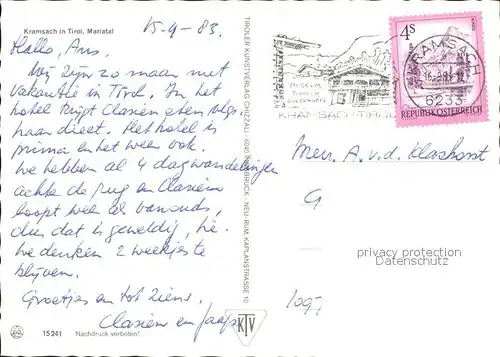 Kramsach in Tirol, Mariatal
15-9-83.
Hallo, Ans.
Wij zijn zo maar met
vakantie in Tirol. In het
hotel krijgt Clasien eten volgens
haar dieet. Het hotel is
prima en het weer ook.
We hebben al 4 dagwandelingen
achter de rug en Clasien
loopt weer als vanouds,
dus dat is geweldig, hè.
We denken 2 weekjes te
blijven.
Groetjes en tot ziens.
Clasien en Jaap
15241 Nachdruck verboten!
TIROLER KUNSTVERLAG CHIZZALI · 6020 INNSBRUCK - NEU-RUM, KAPLANSTRASSE 10
KTV
MUSEUM
TIROLER
BAUERNHÖFE
KRAMSACH TIROL
4S
REPUBLIK ÖSTERREICH
KRAMSACH
6233
Mevr. A. v. d. Klashorst
privacy protection
Datenschutz